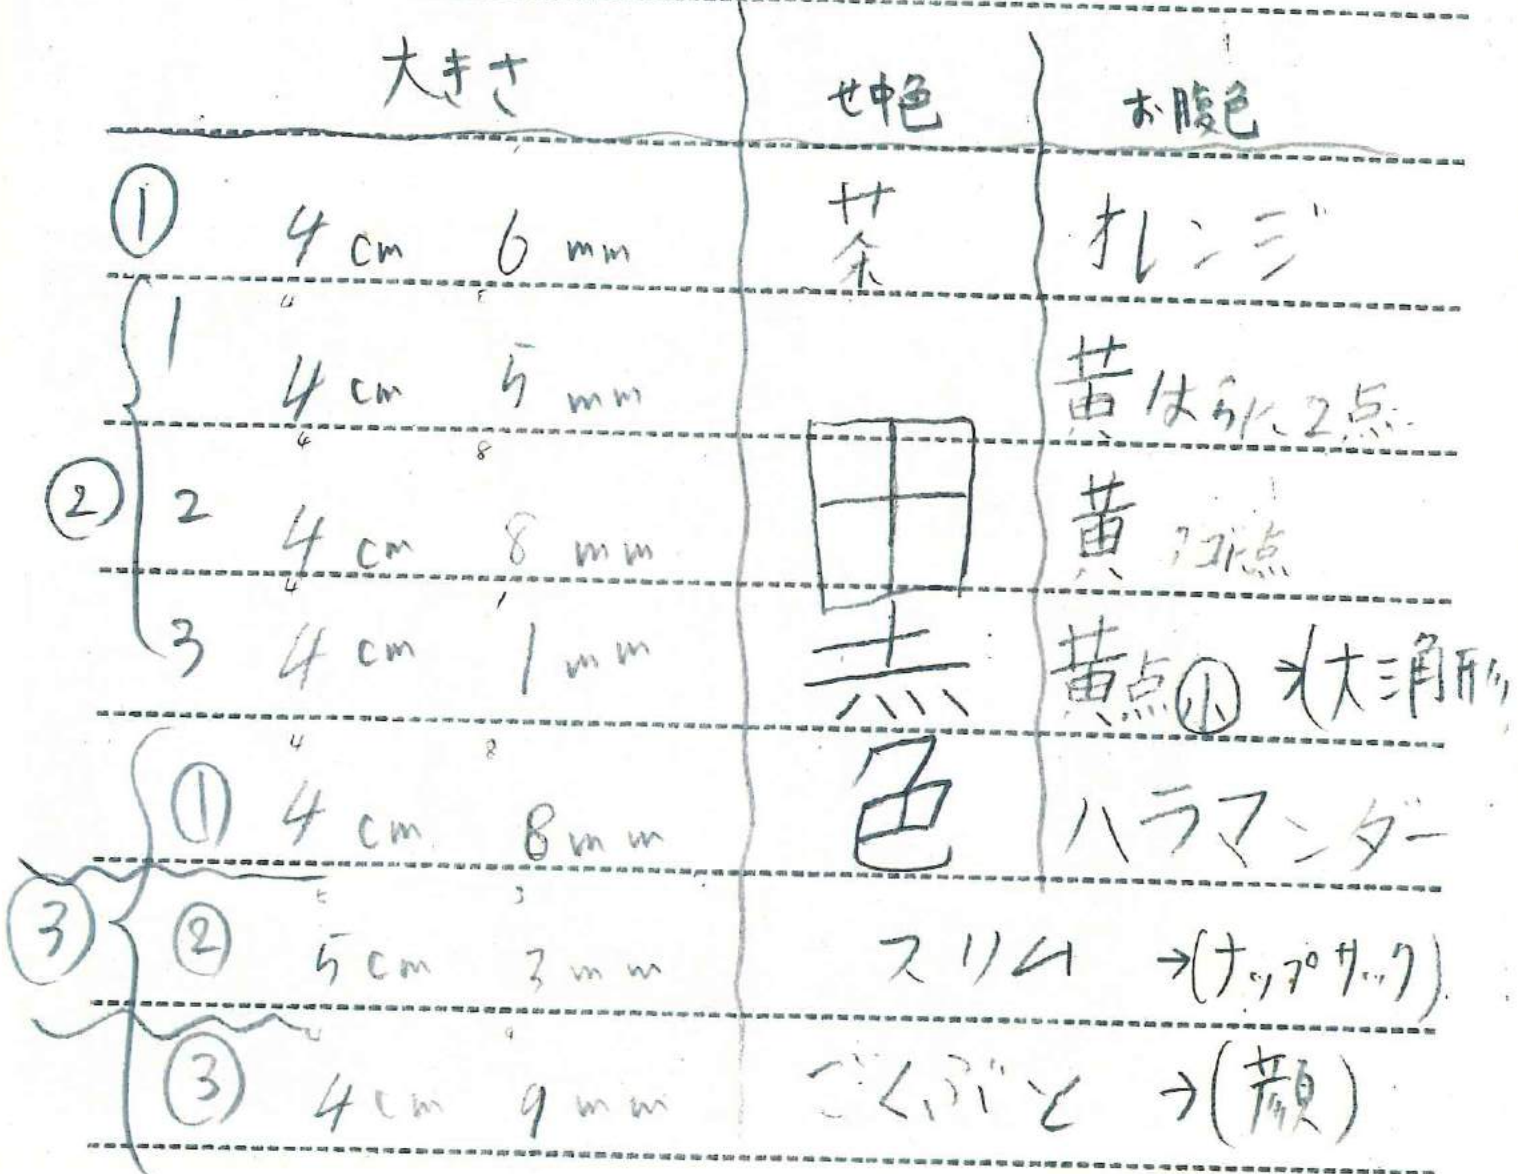 大きさ せ中色 お腹色
① 4cm 6mm 茶 オレンジ
② 1 4cm 5mm 黄 2点
2 4cm 8mm 黄 点
3 4cm 1mm 黒色 黄点 小 →(大三角形)
③ ① 4cm 8mm ハラマンダー
② 5cm 3mm スリム →(ナップサック)
③ 4cm 9mm ごくぶと →(顔)